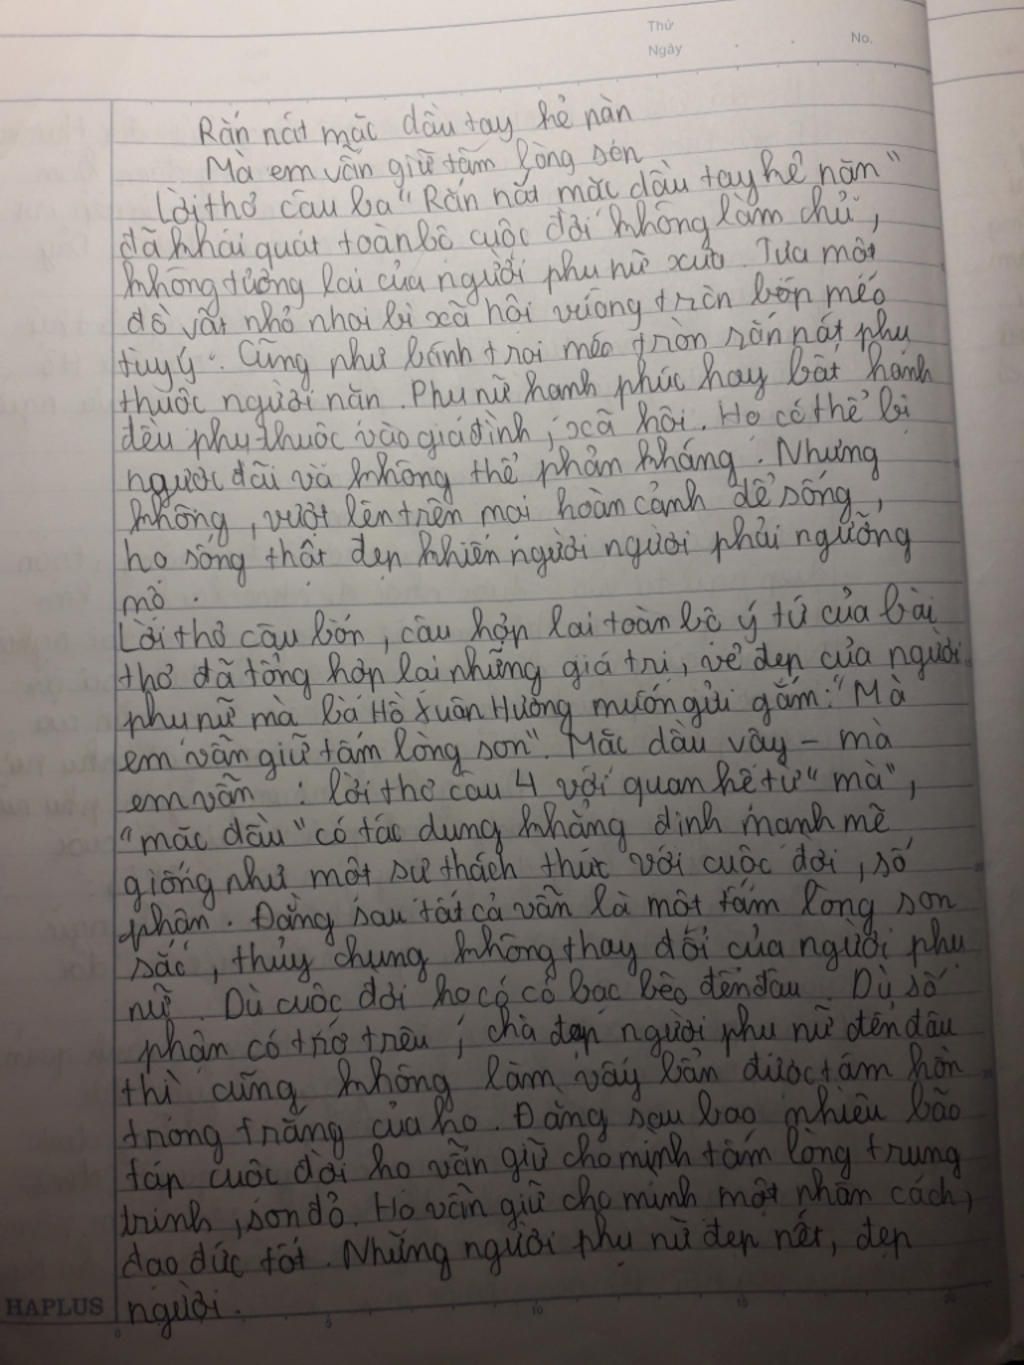 Thứ
Ngày
No.
Rắn nát mặc dầu tay kẻ nặn
Mà em vẫn giữ tấm lòng son
Lời thơ câu ba "Rắn nát mặc dầu tay kẻ nặn"
đã khái quát toàn bộ cuộc đời không làm chủ,
không tương lai của người phụ nữ xưa. Tựa một
đồ vật nhỏ nhoi bị xã hội vuông tròn bóp méo
tùy ý. Cũng như bánh trôi méo tròn rắn nát phụ
thuộc người nặn. Phụ nữ hạnh phúc hay bất hạnh
đều phụ thuộc vào gia đình, xã hội. Họ có thể bị
ngược đãi và không thể phản kháng. Nhưng
không, vượt lên trên mọi hoàn cảnh để sống,
họ sống thật đẹp khiến người người phải ngưỡng
mộ.
Lời thơ câu bốn, câu hợp lại toàn bộ ý tứ của bài
thơ đã tổng hợp lại những giá trị, vẻ đẹp của người
phụ nữ mà bà Hồ Xuân Hương muốn gửi gắm: "Mà
em vẫn giữ tấm lòng son". Mặc dầu vậy - mà
em vẫn : lời thơ câu 4 với quan hệ từ "mà",
"mặc dầu" có tác dụng khẳng định mạnh mẽ
giống như một sự thách thức với cuộc đời, số
phận. Đằng sau tất cả vẫn là một tấm lòng son
sắc, thủy chung không thay đổi của người phụ
nữ. Dù cuộc đời họ có cô bạc bẽo đến đâu. Dù số
phận có trớ trêu, chà đạp người phụ nữ đến đâu
thì cũng không làm vấy bẩn được tâm hồn
trong trắng của họ. Đằng sau bao nhiêu bão
táp cuộc đời họ vẫn giữ cho mình tấm lòng trung
trinh, son đỏ. Họ vẫn giữ cho mình một nhân cách,
đạo đức tốt. Những người phụ nữ đẹp nết, đẹp
người.
HAPLUS
0 5 10 15 20